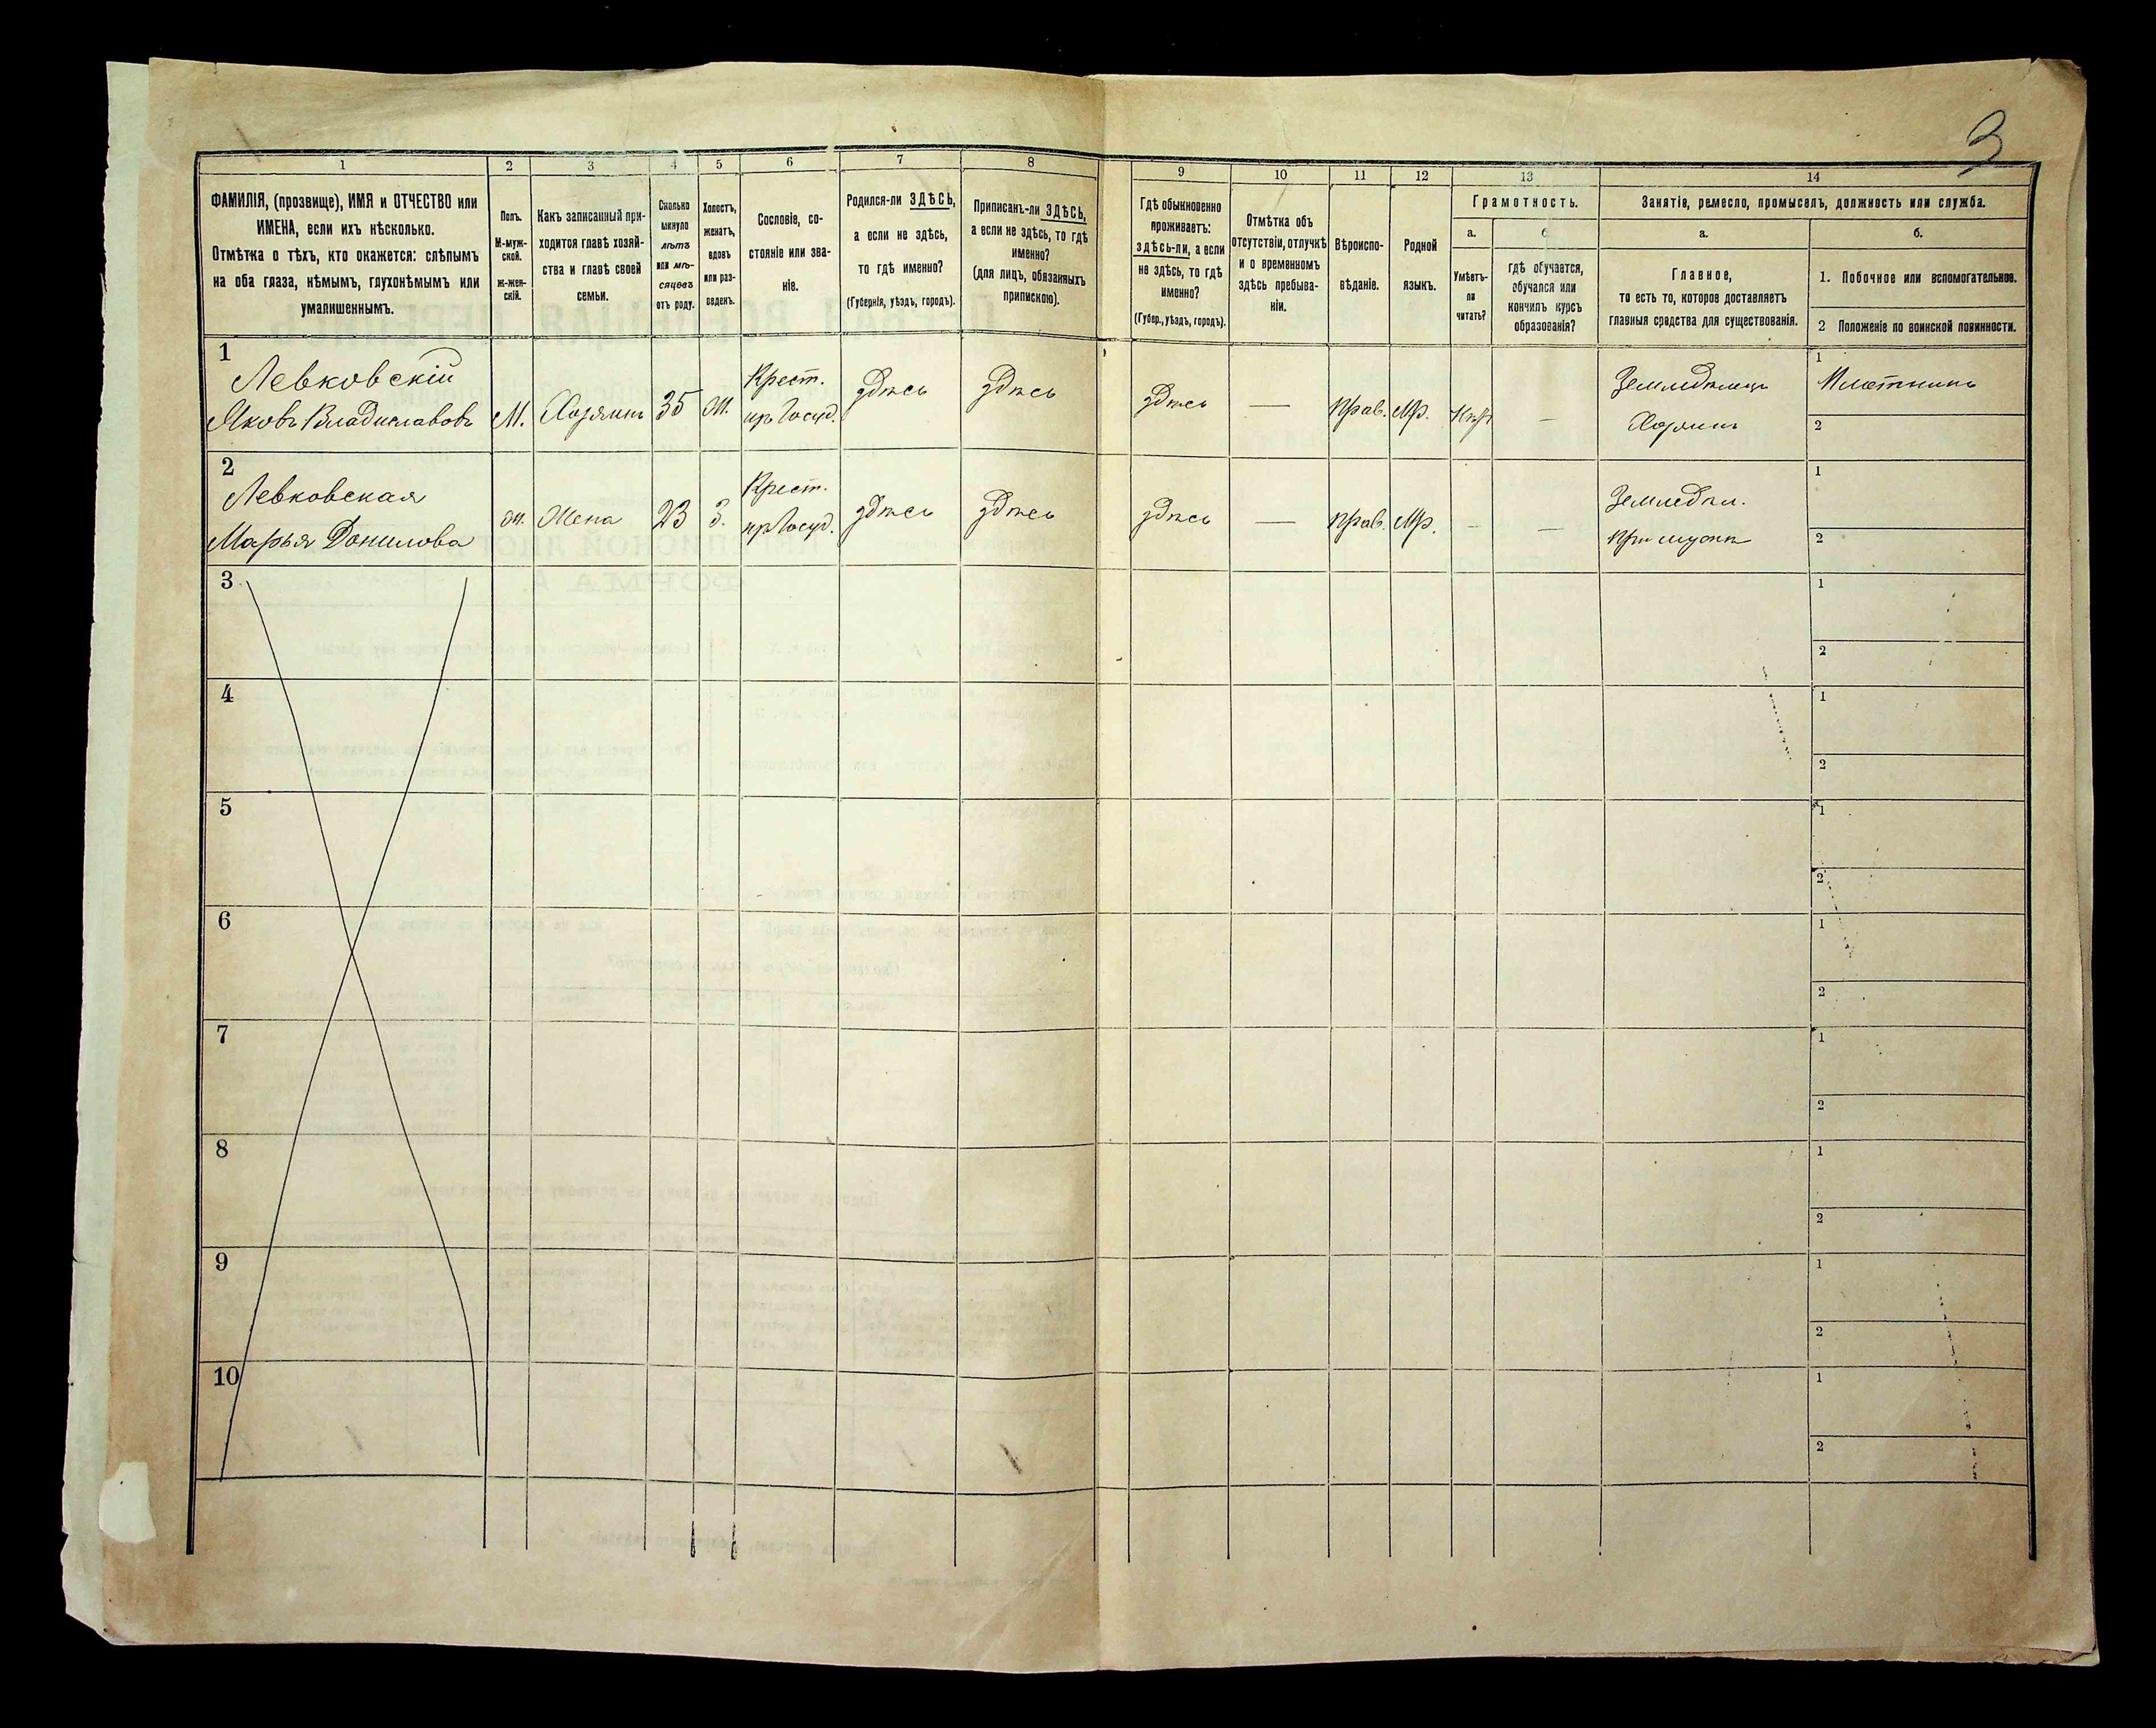 3
1
2
3
4
5
6
7
8
9
10
11
12
13
14
ФАМИЛІЯ, (прозвище), ИМЯ и ОТЧЕСТВО или
ИМЕНА, если ихъ нѣсколько.
Отмѣтка о тѣхъ, кто окажется: слѣпымъ
на оба глаза, нѣмымъ, глухонѣмымъ или
умалишеннымъ.
Полъ.
М-муж-
ской.
ж-жен-
скій.
Какъ записанный при-
ходится главѣ хозяй-
ства и главѣ своей
семьи.
Сколько
минуло
лѣтъ
или мѣ-
сяцевъ
отъ роду.
Холостъ,
женатъ,
вдовъ
или раз-
веденъ.
Сословіе, со-
стояніе или зва-
ніе.
Родился-ли ЗДѢСЬ,
а если не здѣсь,
то гдѣ именно?
(Губернія, уѣздъ, городъ).
Приписанъ-ли ЗДѢСЬ,
а если не здѣсь, то гдѣ
именно?
(для лицъ, обязанныхъ
припискою).
Гдѣ обыкновенно
проживаетъ:
здѣсь-ли, а если
не здѣсь, то гдѣ
именно?
(Губер., уѣздъ, городъ).
Отмѣтка объ
отсутствіи, отлучкѣ
и о временномъ
здѣсь пребыва-
ніи.
Вѣроиспо-
вѣданіе.
Родной
языкъ.
Грамотность.
а.
б
Умѣетъ-
ли
читать?
гдѣ обучается,
обучался или
кончилъ курсъ
образованія?
Занятіе, ремесло, промыселъ, должность или служба.
а.
б.
Главное,
то есть то, которое доставляетъ
главныя средства для существованія.
1. Побочное или вспомогательное.
2 Положеніе по воинской повинности.
1
Левковскій
Яковъ Владиславовъ
М.
Хозяинъ
35
Ж.
Крест.
изъ Госуд.
здѣсь
здѣсь
здѣсь
—
Прав.
Мр.
Нѣтъ
—
Земледѣлецъ
Хозяинъ
1
Плотникъ
2
2
Левковская
Марья Данилова
Ж.
Жена
23
З.
Крест.
изъ Госуд.
здѣсь
здѣсь
здѣсь
—
Прав.
Мр.
—
—
Земледѣл.
При мужѣ
1
2
3
1
2
4
1
2
5
1
2
6
1
2
7
1
2
8
1
2
9
1
2
10
1
2